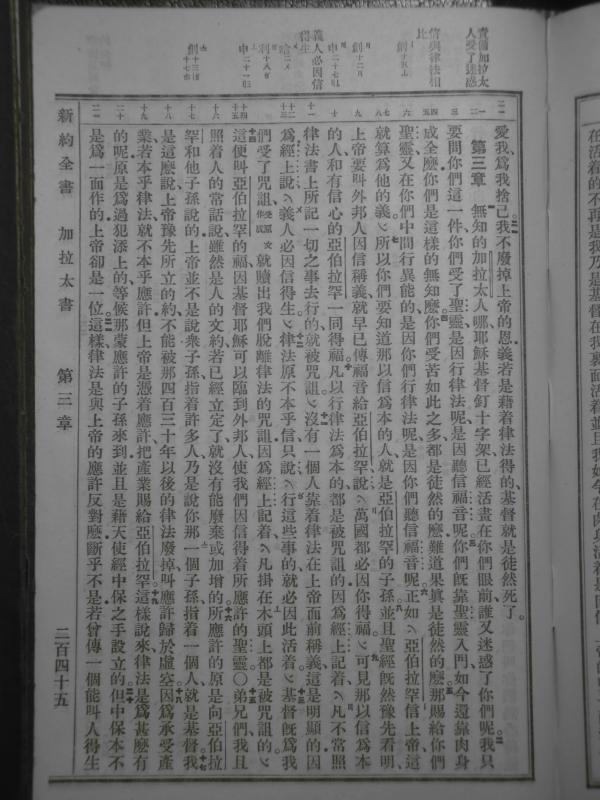 責備加拉太
人受了迷惑
信與律法相
比
義人必因信
得生
愛我爲我捨己我不廢掉上帝的恩義若是藉着律法得的基督就是徒然死了
第三章 無知的加拉太人哪耶穌基督釘十字架已經活畫在你們眼前誰又迷惑了你們呢我只
要問你們這一件你們受了聖靈是因行律法呢是因聽信福音呢你們旣靠聖靈入門如今還靠肉身
成全麽你們是這樣的無知麽你們受苦如此之多都是徒然的麽難道果眞是徒然的麽那賜給你們
聖靈又在你們中間行異能的是因你們行律法呢是因你們聽信福音呢正如亞伯拉罕信上帝這
就算爲他的義所以你們要知道那以信爲本的人就是亞伯拉罕的子孫並且聖經旣然豫先看明
上帝要叫外邦人因信稱義就早已傳福音給亞伯拉罕說萬國都必因你得福可見那以信爲本
的人和有信心的亞伯拉罕一同得福凡以行律法爲本的都是被咒詛的因爲經上記着凡不常照
律法書上所記一切之事去行的就被咒詛沒有一個人靠着律法在上帝面前稱義這是明顯的因
爲經上說義人必因信得生律法原不本乎信只說行這些事的就必因此活着基督旣爲我
們受了咒詛就贖出我們脫離律法的咒詛因爲經上記着凡掛在木頭上都是被咒詛的
這便叫亞伯拉罕的福因基督耶穌可以臨到外邦人使我們因信得着所應許的聖靈○弟兄們我且
照着人的常話說雖然是人的文約若已經立定了就沒有能廢棄或加增的所應許的原是向亞伯拉
罕和他子孫說的上帝並不是說衆子孫指着許多人乃是說你那一個子孫指着一個人就是基督我
是這麽說上帝豫先所立的約不能被那四百三十年以後的律法廢掉叫應許歸於虛空因爲承受產
業若本乎律法就不本乎應許但上帝是憑着應許把產業賜給亞伯拉罕這樣說來律法是爲甚麽有
的呢原是爲過犯添上的等候那蒙應許的子孫來到並且是藉天使經中保之手設立的但中保本不
是爲一面作的上帝卻是一位這樣律法是與上帝的應許反對麽斷乎不是若曾傳一個能叫人得生
新約全書 加拉太書 第三章 二百四十五